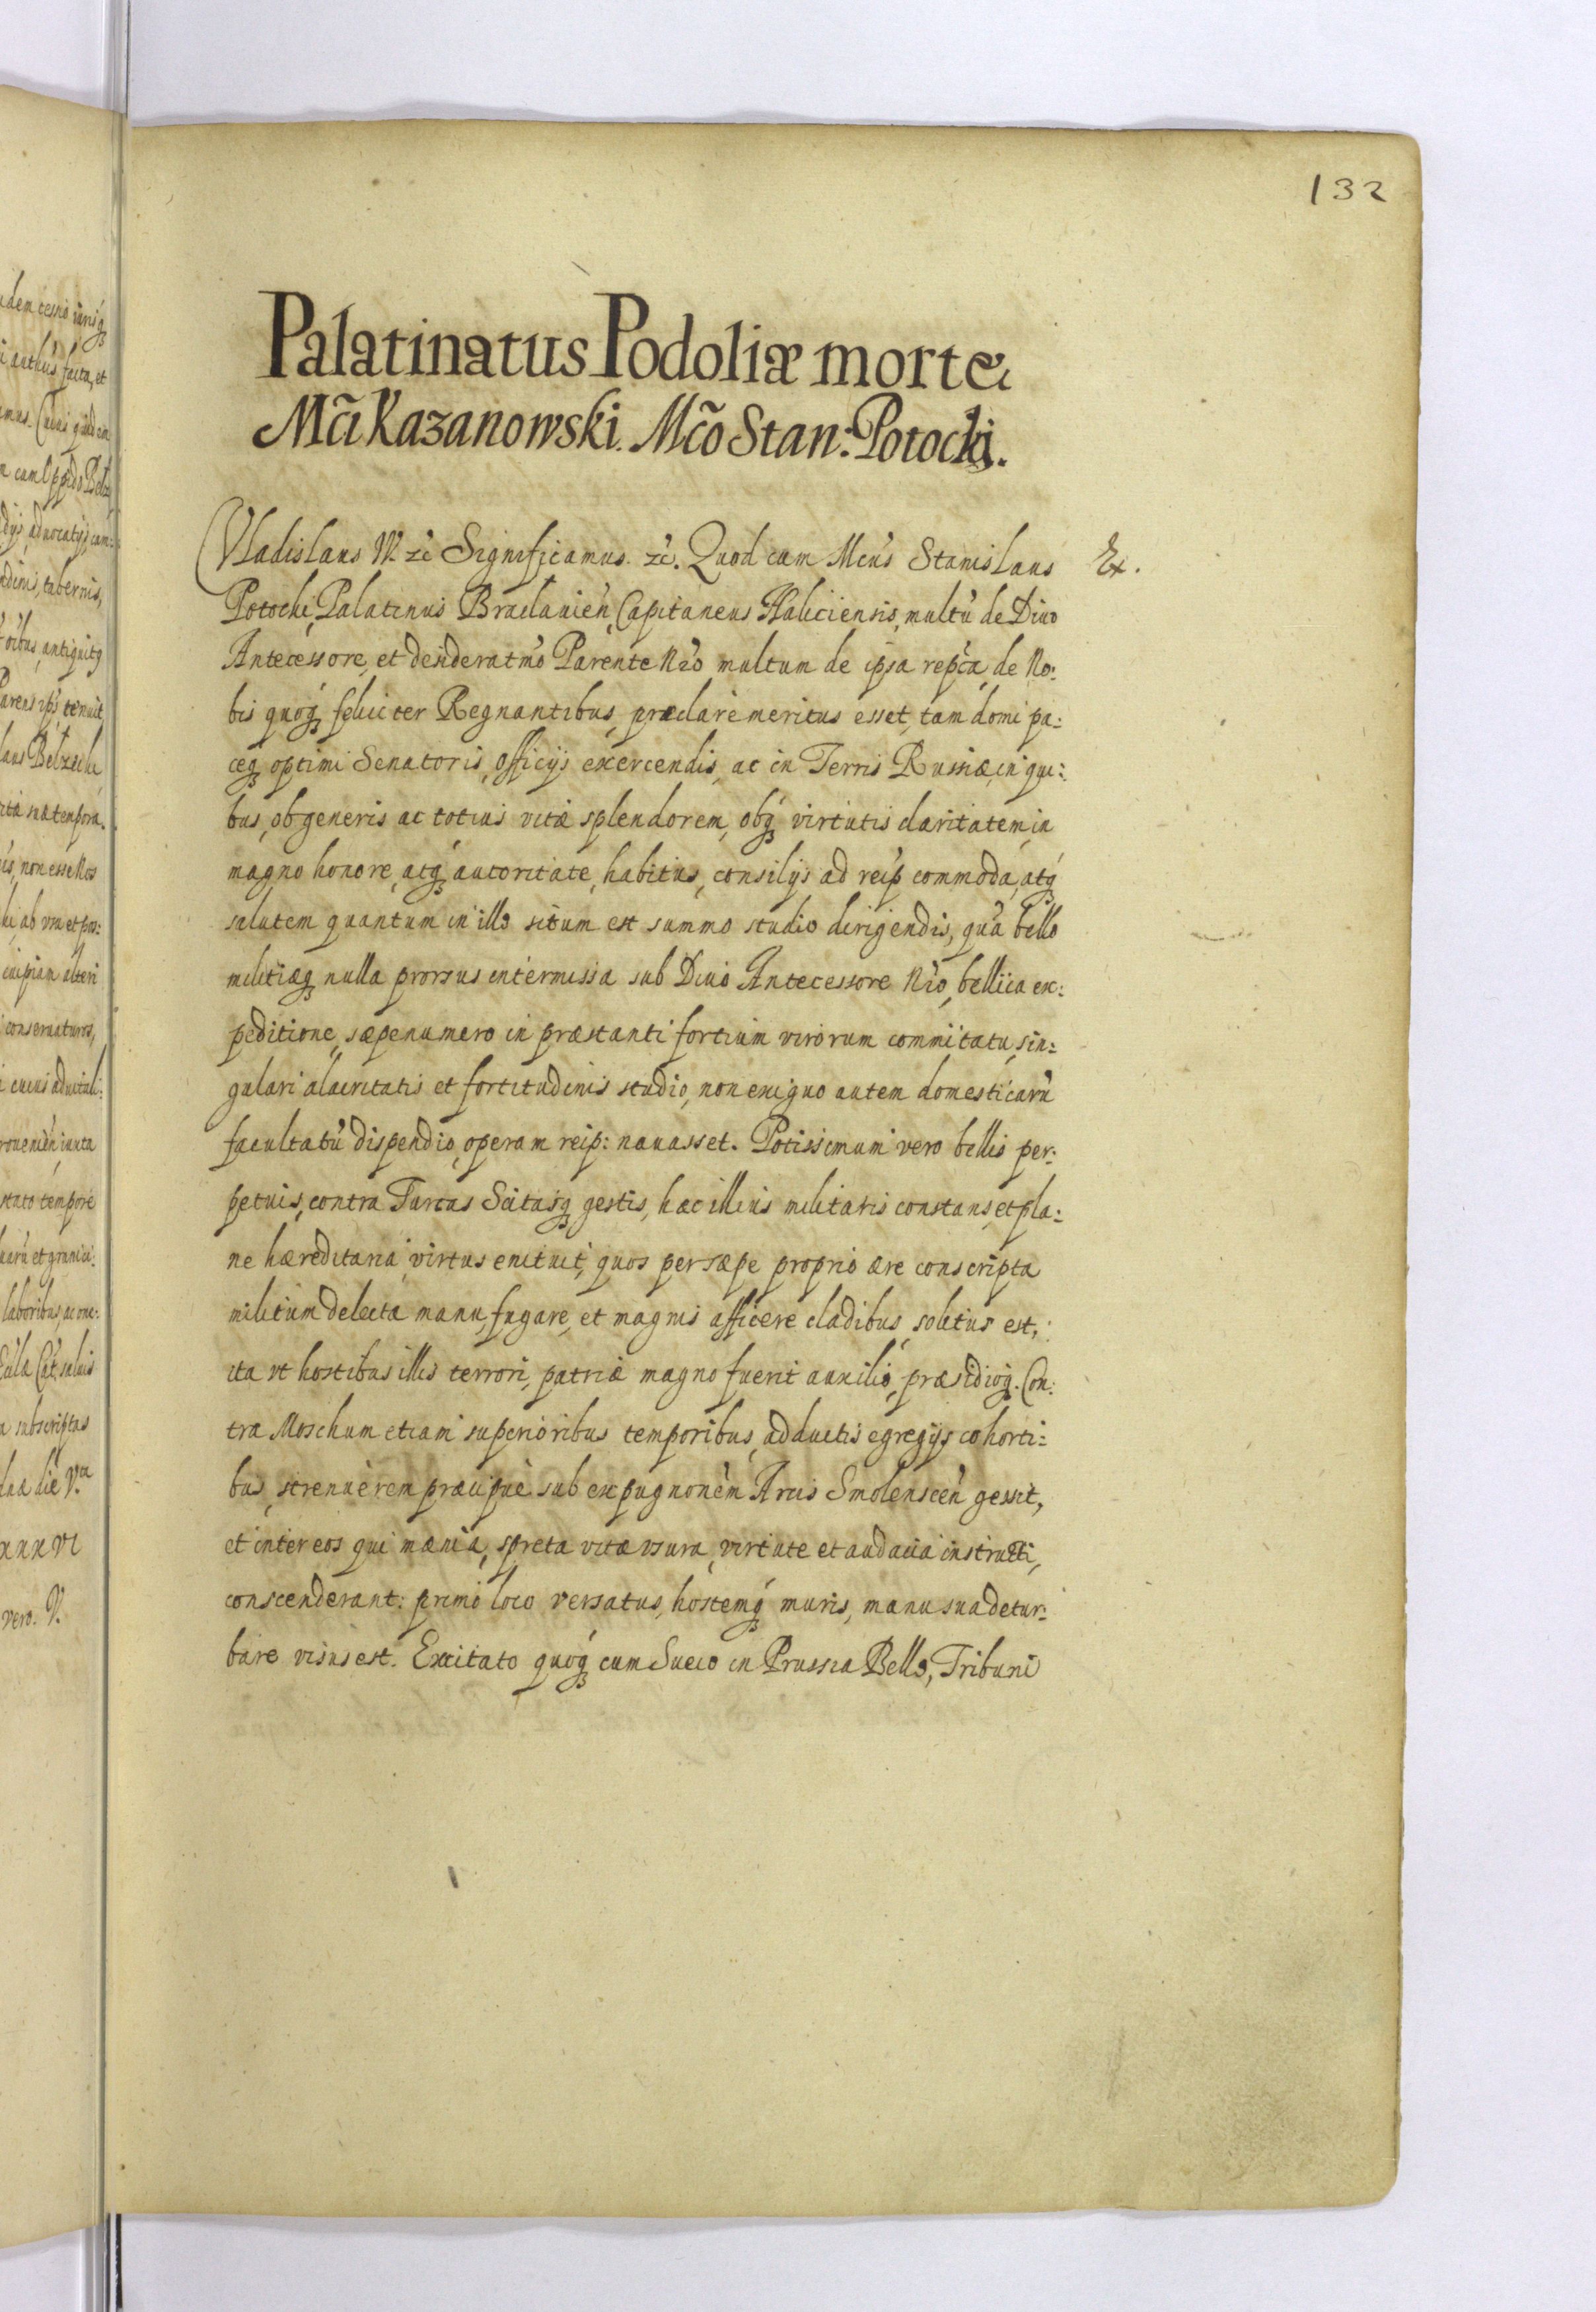 132
Palatinatus Podoliæ morte
Mci Kazanowski. Mco Stan: Potocki.
Vladislaus IV. zc Significamus. zc. Quod cum Mcus Stanislaus
Ex.
Potocki, Palatinus Braclauien, Capitaneus Haliciensis, multu de Diuo
Antecessore, et desideratmo Parente Nro multum de ipsa repca, de No:
bis quoq feliciter Regnantibus, præclarè meritus esset, tam domi pa:
ceq optimi Senatoris, officijs exercendis, ac in Terris Russiæ, in qui:
bus, ob generis ac totius vitæ splendorem, obq virtutis claritatem, in
magno honore, atq autoritate, habitus, consilijs ad reip commoda, atq
salutem quantum in illo situm est summo studio dirigendis, qua bello
militiaq nulla prorsus intermissa sub Diuo Antecessore Nro, bellica ex:
peditione, sæpenumero in præstanti fortium virorum commitatu, sin:
gulari alacritatis et fortitudinis studio, non exiguo autem domesticaru
facultatu dispendio, operam reip: nauasset. Potissimum vero bellis per:
petuis, contra Turcas Scitasq gestis, hæc illius militaris constans, et pla:
ne hæreditaria virtus enituit, quos persæpe proprio ære conscripta
militum delecta manu, fugare, et magnis afficere cladibus, solitus est,
ita vt hostibus illis terrori, patriæ magno fuerit auxilio, præsidioq. Con:
tra Moschum etiam superioribus temporibus, adductis egregijs cohorti:
bus, strenuè rem præcipuè sub expugnonem Arcis Smolenscen gessit,
et inter eos qui mænia, spreta vitæ vsura, virtute et audacia instructi,
conscenderant: primo loco versatus, hostemq muris, manu sua detur:
bare visus est. Excitato quoq cum Sueco in Prussia Bello, Tribuni